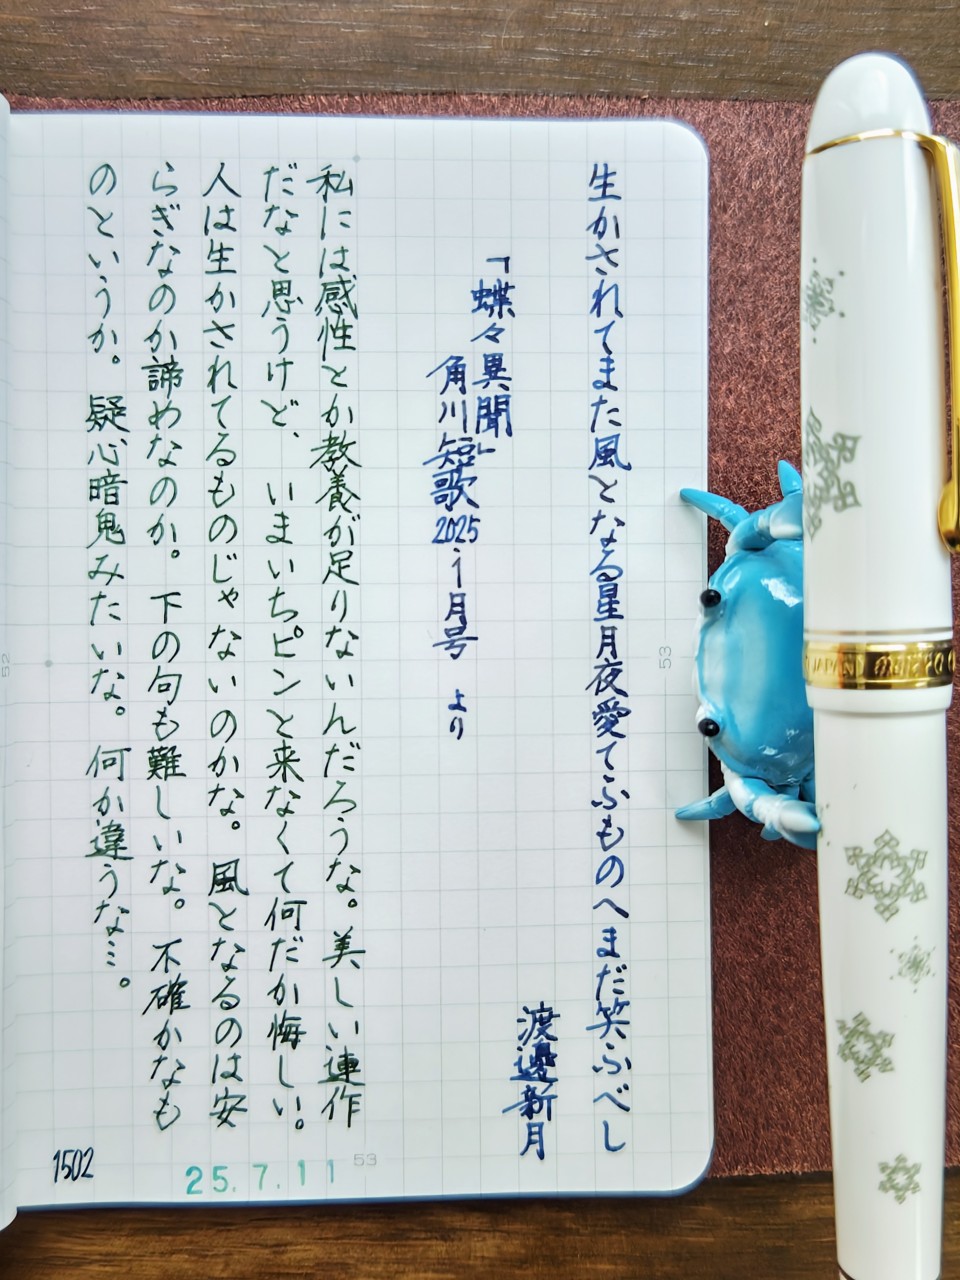 生かされてまた風となる星月夜愛てふものへまだ笑ふべし
渡邊新月
「蝶々異聞」
角川短歌2025.1月号 より
私には感性とか教養が足りないんだろうな。美しい連作
だなと思うけど、いまいちピンと来なくて何だか悔しい。
人は生かされてるものじゃないのかな。風となるのは安
らぎなのか諦めなのか。下の句も難しいな。不確かなも
のというか。疑心暗鬼みたいな。何か違うな…。
1502
25.7.11
53
53
52
JAPAN